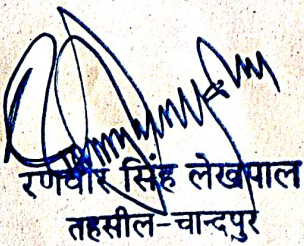 रणधीर सिंह लेखपाल
तहसील-चान्दपुर